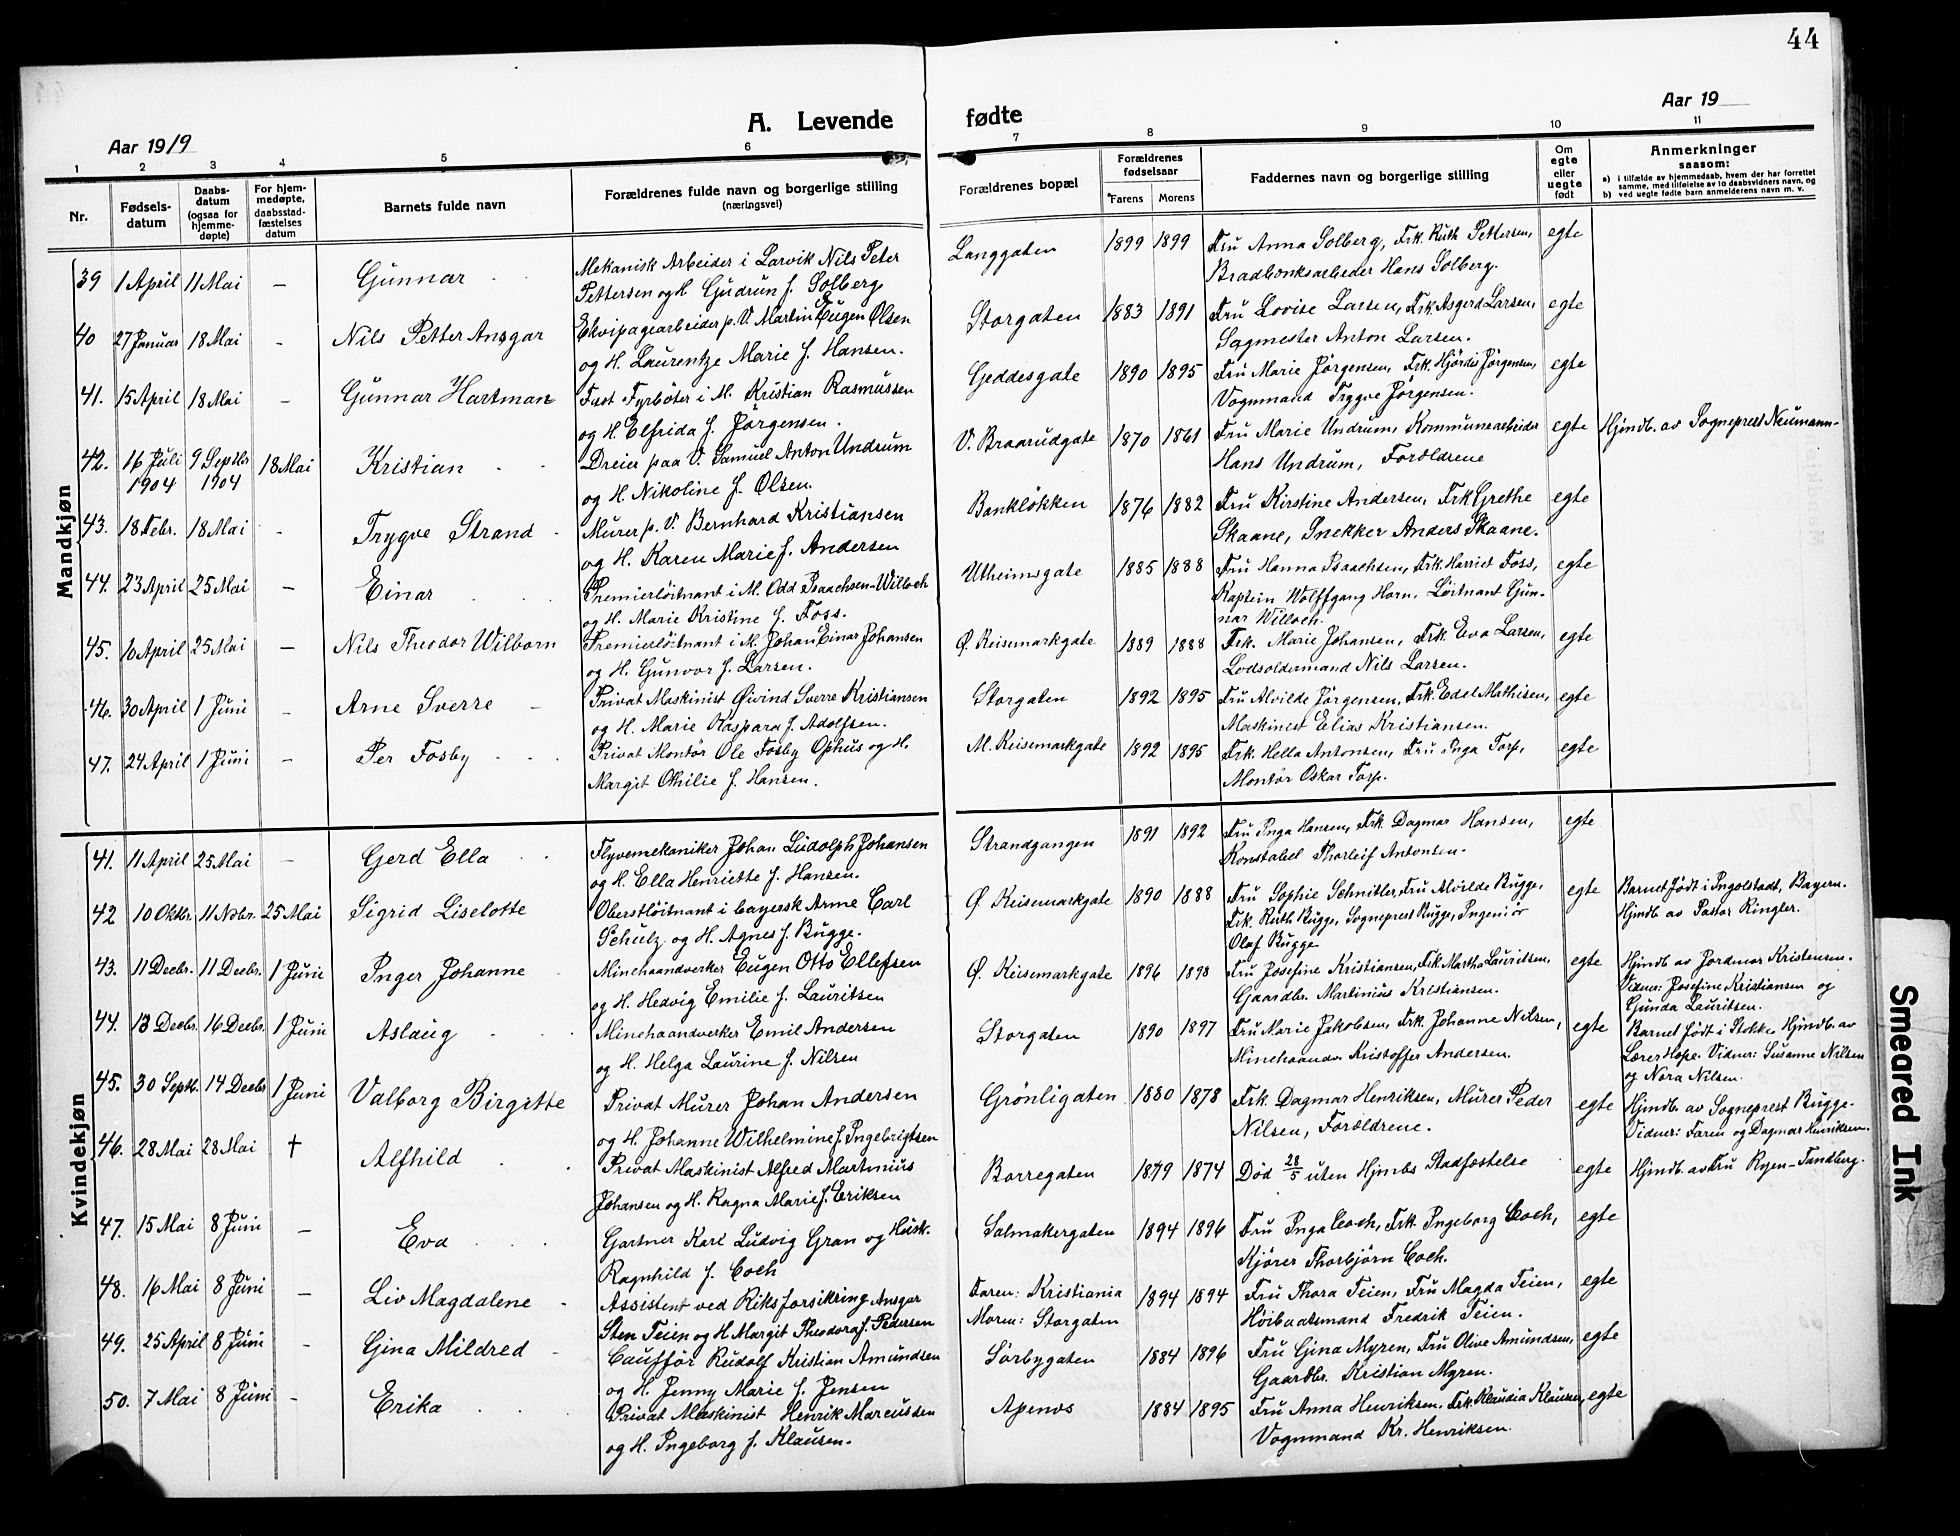 44
Aar 1919
A. Levende
fødte
Aar 19
1 2 3 4 5 6 7 8 9 10 11
Nr.
Fødsels-
datum
Daabs-
datum
(ogsaa for
hjemme-
døpte)
For hjem-
medøpte,
daabsstad-
fæstelses
datum
Barnets fulde navn
Forældrenes fulde navn og borgerlige stilling
(næringsvei)
Forældrenes bopæl
Forældrenes
fødselsaar
Farens Morens
Faddernes navn og borgerlige stilling
Om
egte
eller
uegte
født
Anmerkninger
saasom:
a) i tilfælde av hjemmedaab, hvem der har forrettet
samme, med tilføielse av to daabsvidners navn, og
b) ved uegte fødte barn anmelderens navn m. v.
Mandkjøn
39 1 April 11 Mai - Gunnar
Mekanisk Arbeider i Larvik Nils Peter
Pettersen og H. Gudrun f. Solberg
Langgaten 1899 1899
Fru Anna Solberg, Frk. Ruth Pettersen,
Bradbænksarbeder Hans Solberg.
egte
40 27 Januar 18 Mai - Nils Petter Ansgar
Ekvipagearbeider p. V. Martin Eugen Olsen
og H. Laurentze Marie f. Hansen.
Storgaten 1883 1891
Fru Lovise Larsen, Frk. Asgerd Larsen,
Sagmester Anton Larsen.
egte
41. 15 April 18 Mai - Gunnar Hartman
Fast Fyrbøter i M. Kristian Rasmussen
og H. Elfrida f. Jørgensen.
Geddesgate 1890 1895
Fru Marie Jørgensen, Frk. Hjørdis Jørgensen,
Vognmand Trygve Jørgensen.
egte
42. 16 Juli 9 Septbr 18 Mai Kristian
1904 1904
Dreier paa V. Samuel Anton Undrum
og H. Nikoline f. Olsen.
V. Braarudgate 1870 1861
Fru Marie Undrum, Kommunearbeider
Hans Undrum, Forældrene
egte
Hjmdb. av Sogneprest Neumann-
43. 18 Febr. 18 Mai - Trygve Strand
Murer p. V. Bernhard Kristiansen
og H. Karen Marie f. Andersen
Bankløkken 1876 1882
Fru Kirstine Andersen, Frk Grethe
Skaane, Snekker Anders Skaane.
egte
44. 23 April 25 Mai - Einar
Premierløitnant i M. Odd Isaachsen-Willoch
og H. Marie Kristine f. Foss.
Utheimsgate 1885 1888
Fru Hanna Isaachsen, Frk. Harriet Foss,
Kaptein Wolffgang Horn, Løitnant Gun-
nar Willoch.
egte
45. 10 April 25 Mai - Nils Theodor Wilborn
Premierløitnant i M. Johan Einar Johansen
og H. Gunvor f. Larsen.
Ø. Keisemarkgate 1889 1888
Frk. Marie Johansen, Frk. Eva Larsen,
Lodsoldermand Nils Larsen.
egte
46. 30 April 1 Juni - Arne Sverre
Privat Maskinist Øivind Sverre Kristiansen
og H. Marie Kaspara f. Adolfsen.
Storgaten 1892 1895
Fru Alvilde Jørgensen, Frk. Edel Mathisen,
Maskinist Elias Kristiansen.
egte
47. 24 April 1 Juni - Per Fosby
Privat Montør Ole Fosby Ophus og H.
Margit Othilie f. Hansen.
M. Keisemarkgate 1892 1895
Frk. Hella Antonsen, Fru Inga Torp,
Montør Oskar Torp.
egte
Kvindekjøn
41. 11 April 25 Mai - Gerd Ella
Flyvemekaniker Johan Ludolph Johansen
og H. Ella Henriette f. Hansen.
Strandgangen 1891 1892
Fru Inga Hansen, Frk. Dagmar Hansen,
Konstabel Thorleif Antonsen.
egte
42 10 Oktbr. 11 Nobr. 25 Mai Sigrid Liselotte
Oberstløitnant i bayersk Arme Carl
Schulz og H. Agnes f. Bugge.
Ø Keisemarkgate 1890 1888
Fru Sophie Schnitler, Fru Alvilde Bugge,
Frk. Ruth Bugge, Sogneprest Bugge, Ingeniør
Olaf Bugge
egte
Barnet født i Ingolstadt, Bayern.
Hjmdb. av Pastor Ringler.
43. 11 Decbr. 11 Decbr. 1 Juni Inger Johanne
Minehaandverker Eugen Otto Ellefsen
og H. Hedvig Emilie f. Lauritsen
Ø. Keisemarkgate 1896 1898
Fru Josefine Kristiansen, Frk. Martha Lauritsen,
Gaardbr. Martinius Kristiansen.
egte
Hjmdb. av Jordmor Kristensen.
Vidner: Josefine Kristiansen og
Gunda Lauritsen.
44. 13 Decbr. 16 Decbr. 1 Juni Aslaug
Minehaandverker Emil Andersen
og H. Helga Laurine f. Nilsen
Storgaten 1890 1897
Fru Marie Jakobsen, Frk. Johanne Nilsen,
Minehaandv. Kristoffer Andersen.
egte
Barnet født i Stokke. Hjmdb. av
Lærer Hope. Vidner: Susanne Nilsen
og Nora Nilsen.
45. 30 Septbr. 14 Decbr 1 Juni Valborg Birgitte
Privat Murer Johan Andersen
og H. Johanne Wilhelmine f. Ingebrigtsen
Grønligaten 1880 1878
Frk. Dagmar Henriksen, Murer Peder
Nilsen, Forældrene.
egte
Hjmdb. av Sogneprest Bugge-
Vidner: Faren og Dagmar Henriksen.
46. 28 Mai 28 Mai † Alfhild
Privat Maskinist Alfred Martinius
Johansen og H. Ragna Marie f. Eriksen
Borregaten 1879 1874
Død 28/5 uten Hjmbs Stadfæstelse
egte
Hjmdb. av Fru Ryen-Tandberg.
47. 15 Mai 8 Juni - Eva
Gartner Karl Ludvig Gran og Husk.
Ragnhild f. Coch
Salmakergaten 1894 1896
Fru Inga Coch, Frk Ingeborg Coch,
Kjører Thorbjørn Coch.
egte
48. 16 Mai 8 Juni - Liv Magdalene
Assistent ved Riksforsikring Ansgar
Sten Teien og H. Margit Theodora f. Pedersen
Faren: Kristiania
Moren: Storgaten
1894 1894
Fru Thora Teien, Fru Magda Teien,
Høibaatsmand Fredrik Teien.
egte
49. 25 April 8 Juni - Gina Mildred
Cauffør Rudolf Kristian Amundsen
og H. Jenny Marie f. Jensen
Sørbygaten 1884 1896
Fru Gina Myren, Fru Olive Amundsen,
Gaardbr. Kristian Myren.
egte
50. 7 Mai 8 Juni - Erika
Privat Maskinist Henrik Marcussen
og H. Ingeborg f. Klausen.
Apenes 1884 1895
Fru Anna Henriksen, Frk. Klaudia Klausen,
Vognmand Kr. Henriksen.
egte
Smeared Ink